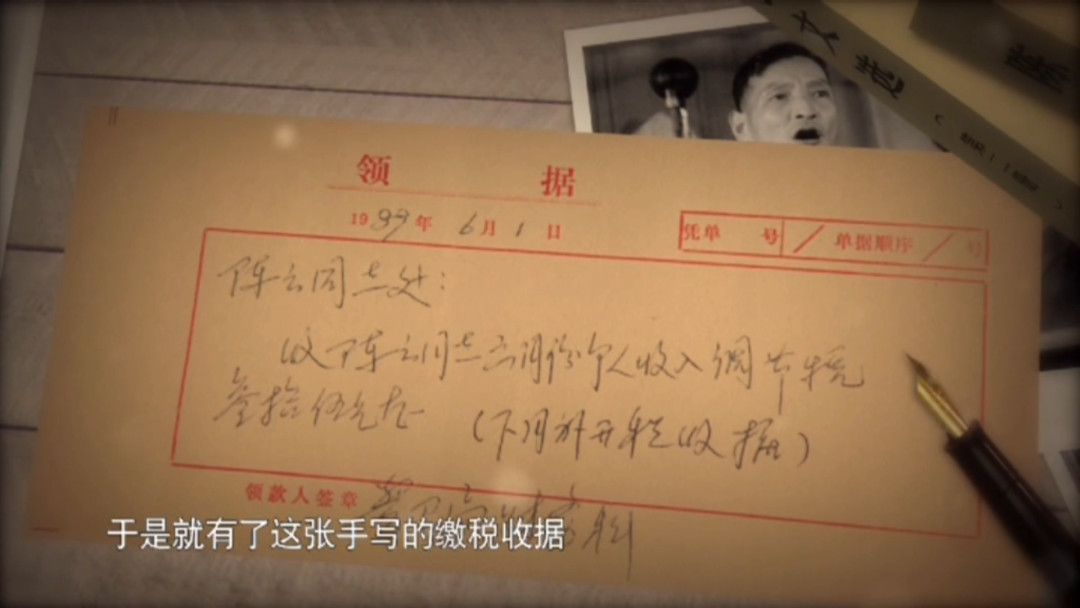 领 据
1989年 6月 1日
凭单 号 / 单据顺序 / 号
陈云同志处：
收陈云同志六月份个人收入调节税
叁拾伍元左
（下月补开税收据）
领款人签章
于是就有了这张手写的缴税收据